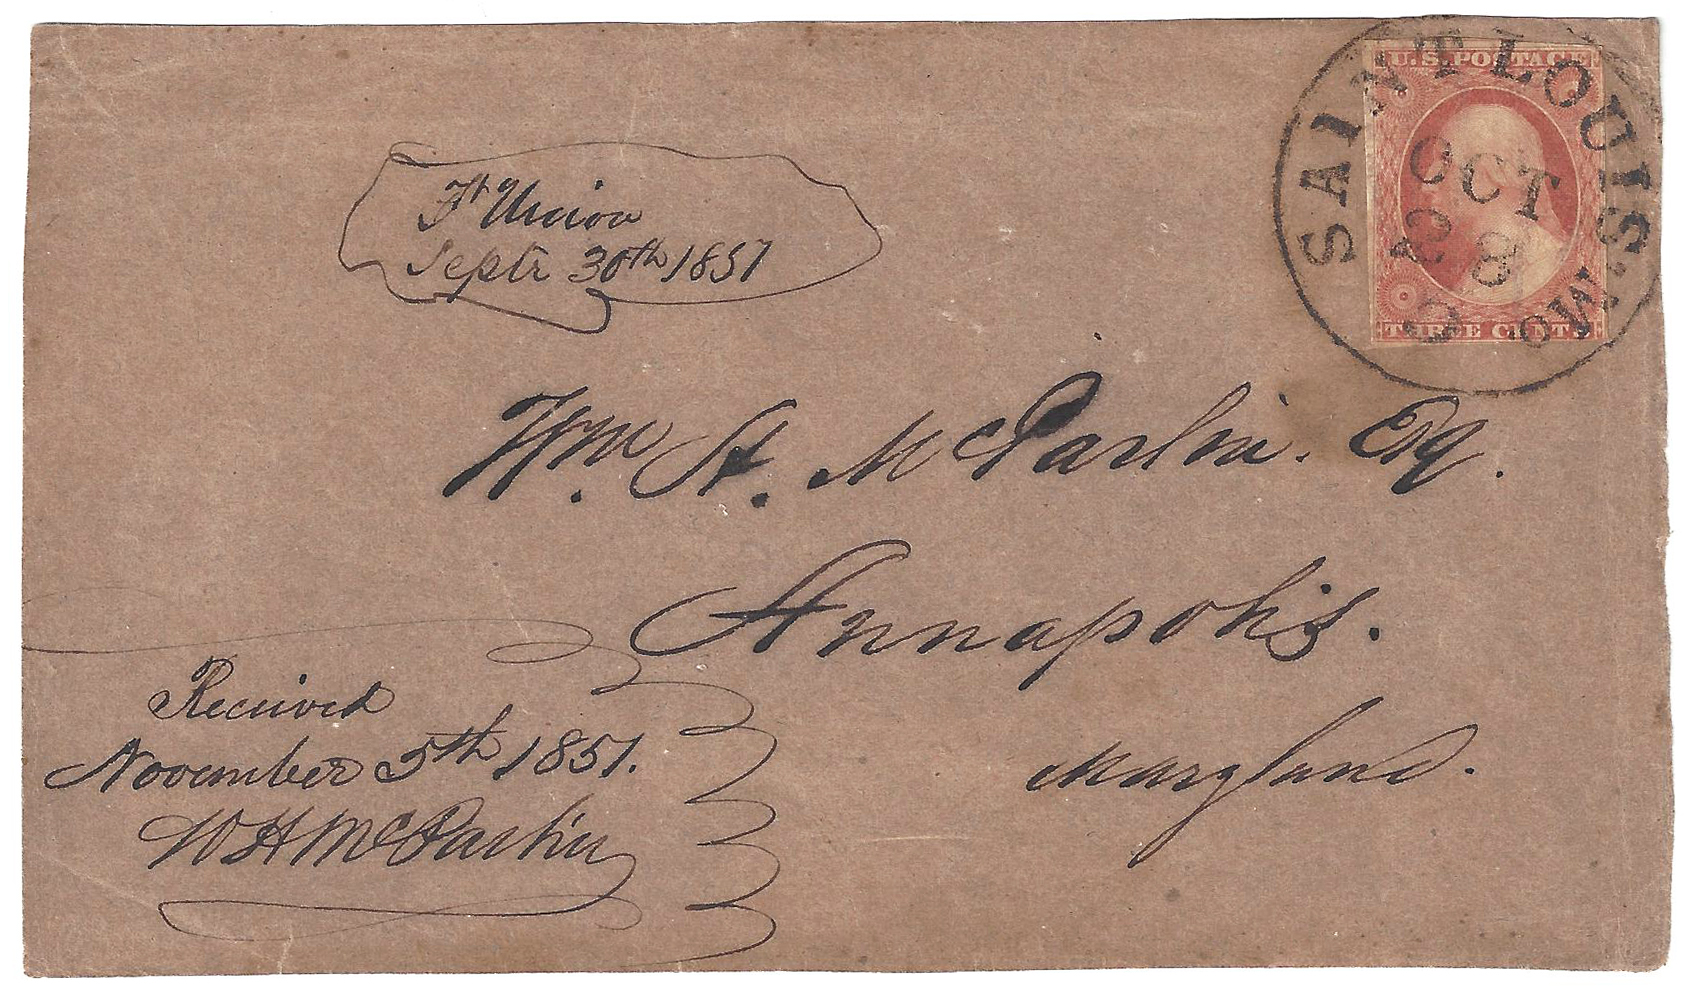 U.S. POSTAGE
THREE CENTS
SAINT LOUIS Mo.
OCT
8
Ft Union
Septr 30th 1851
Wm H. McParlin. Esq.
Annapolis.
Maryland.
Received
November 5th 1851.
WH McParlin